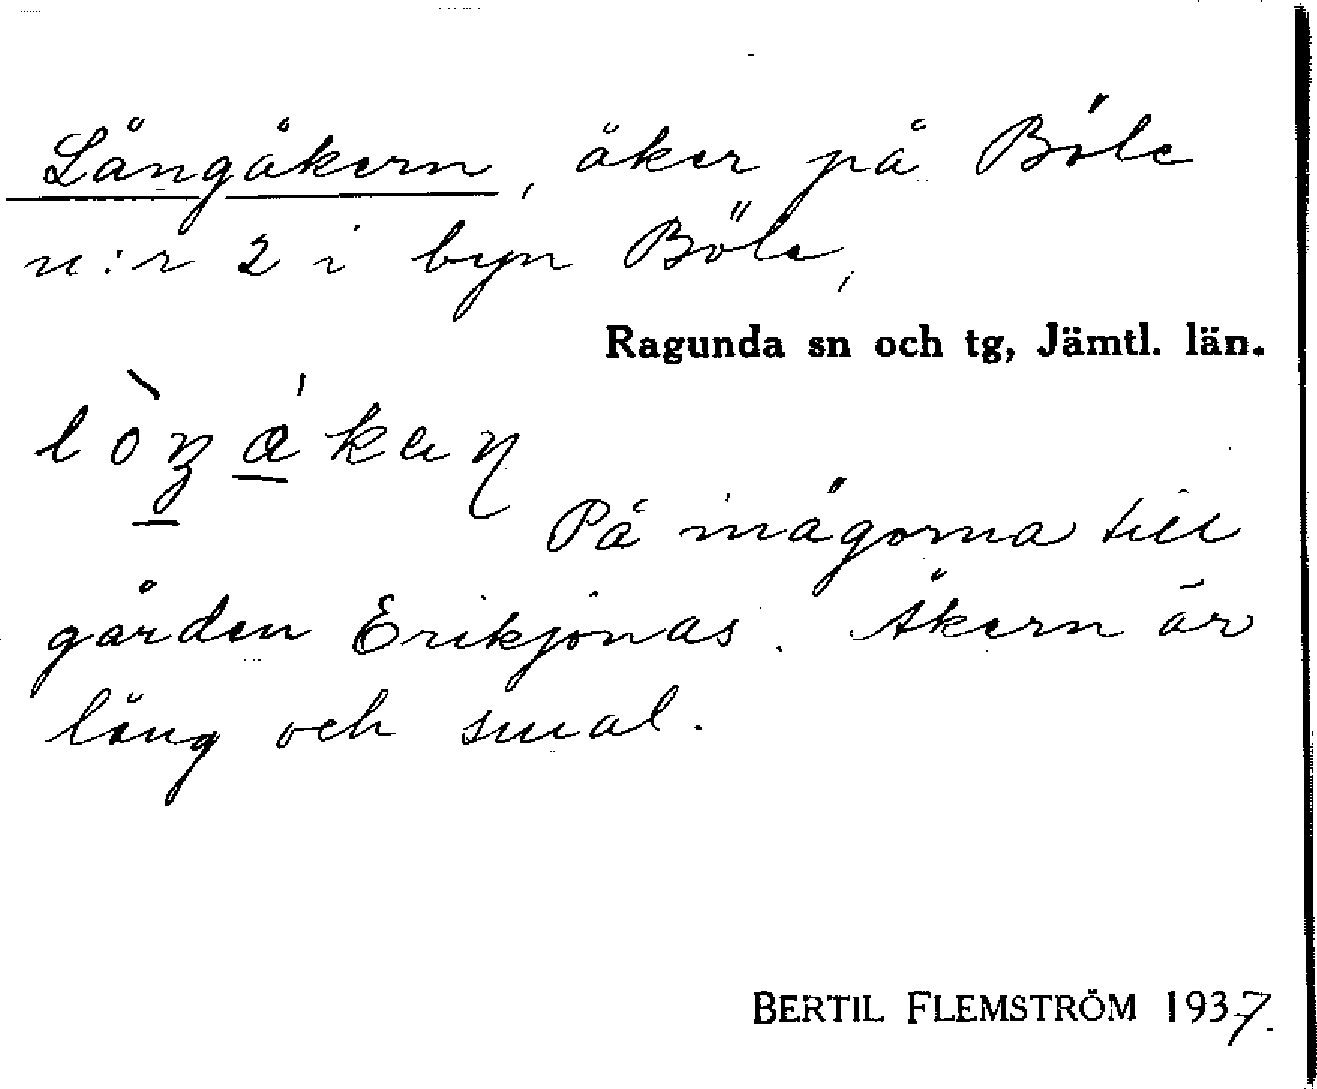 Långåkern, åker på Böle
n:r 2 i byn Böle,
Ragunda sn och tg, Jämtl. län.
På inägorna till
gården Erikjonas. Åkern är
lång och smal.
BERTIL FLEMSTRÖM 1937.